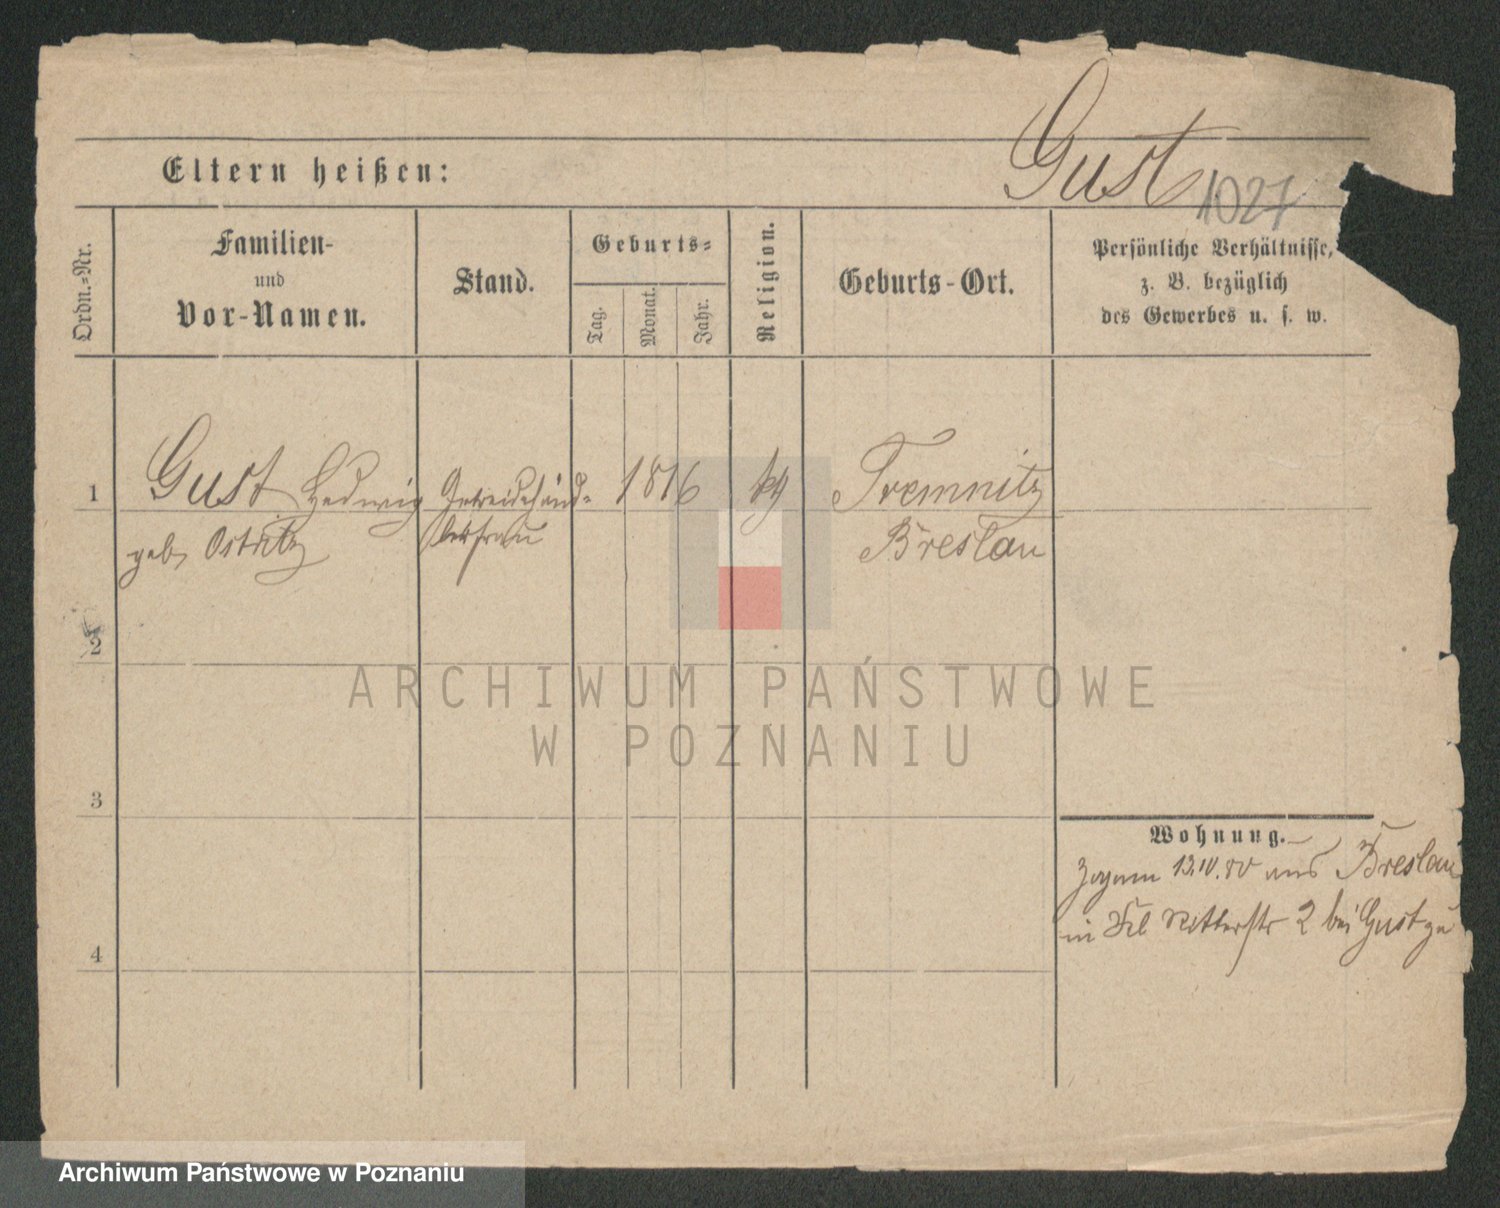 Gust
1027
Eltern heißen:
Ordn.-Nr.
Familien-
und
Vor-Namen.
Stand.
Geburts-
Tag.
Monat.
Jahr.
Religion.
Geburts-Ort.
Persönliche Verhältnisse,
z. B. bezüglich
des Gewerbes u. s. w.
1
Gust Hedwig Getreidehänd- 1816 Tremnitz
geb Ostritz lerfrau Breslau
2
3
4
Wohnung.
13.IV.80 aus Breslau
in Ritterstr 2 bei Gust zu
ARCHIWUM PAŃSTWOWE
W POZNANIU
Archiwum Państwowe w Poznaniu